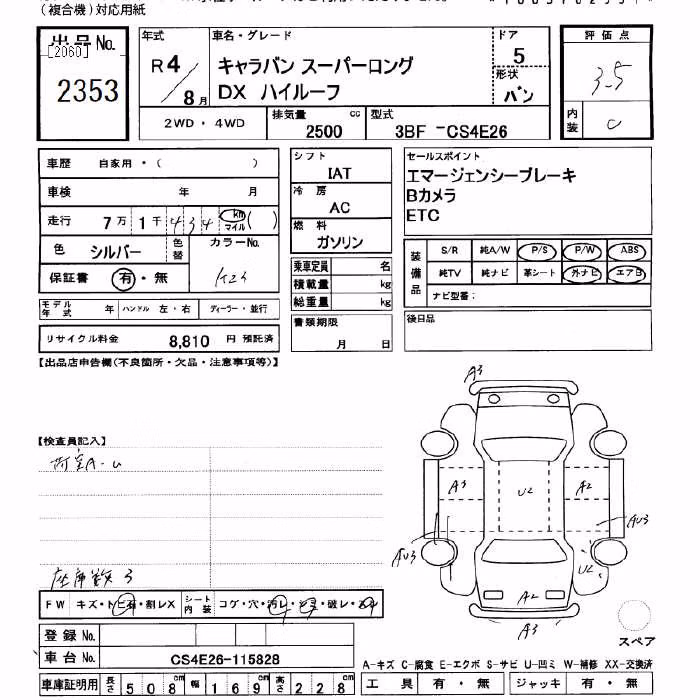 (複合機)対応用紙
出品No.
[2060]
2353
年式
R4/8月
車名・グレード
キャラバン スーパーロング
DX ハイルーフ
ドア
5
形状
バン
評価点
3.5
内装
C
2WD・4WD
排気量 2500 cc
型式 3BF -CS4E26
車歴 自家用・( )
車検 年 月
走行 7万1千434 km マイル ( )
色 シルバー 色替 カラーNo. K23
保証書 有・無
モデル年式 年 ハンドル 左・右 ディーラー・並行
リサイクル料金 8,810 円 預託済
シフト
IAT
冷房
AC
燃料
ガソリン
乗車定員 名
積載量 kg
総重量 kg
書類期限
月 日
セールスポイント
エマージェンシーブレーキ
Bカメラ
ETC
装備品
S/R 純A/W P/S P/W ABS
純TV 純ナビ 革シート 外ナビ エアB
ナビ型番:
後日品
【出品店申告欄(不良箇所・欠品・注意事項等)】
【検査員記入】
荷室A-U
座席数 3
FW キズ・トビ石・割レX シート内装 コゲ・穴・汚レ・シミ・破レ・スレ
A3
A3
U2
A2
AU3
AU3
U2
A2
A3
スペア
登録No.
車台No. CS4E26-115828
A-キズ C-腐食 E-エクボ S-サビ U-凹ミ W-補修 XX-交換済
車庫証明用 長さ 508cm 幅 169cm 高さ 228cm
工具 有・無 ジャッキ 有・無